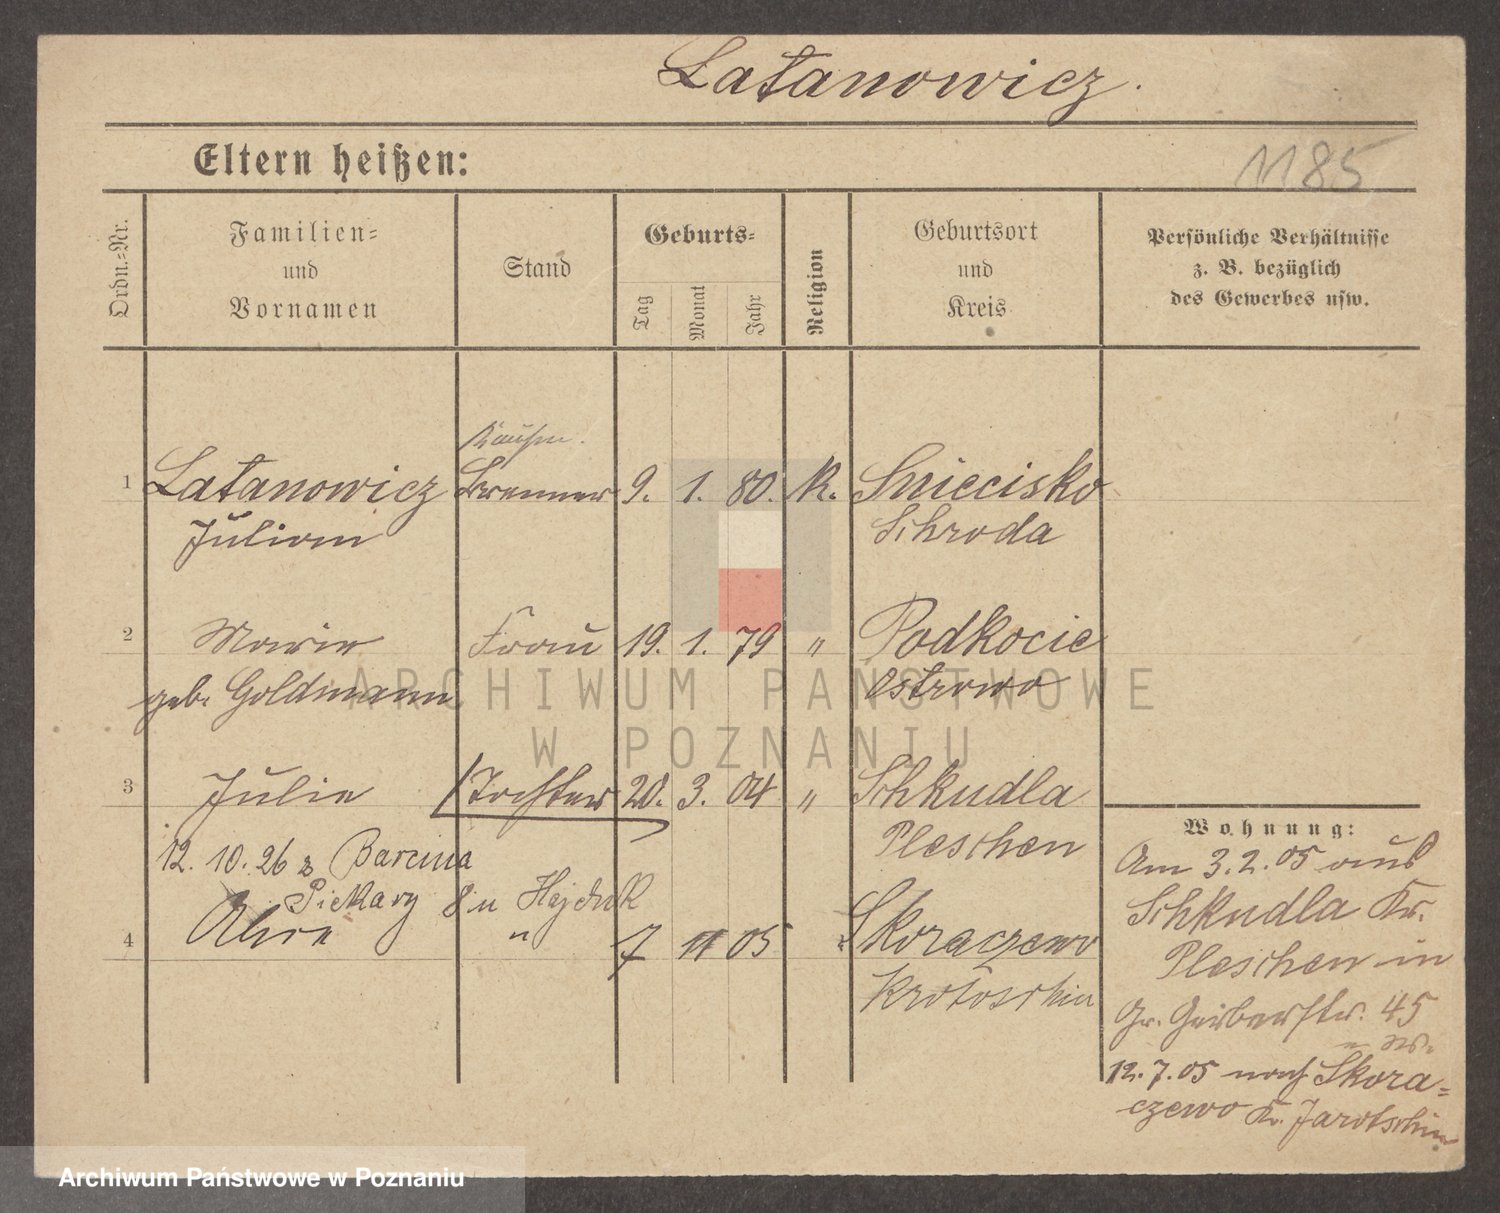 Latanowicz.
Eltern heißen:
1185
Ordn.-Nr.
Familien-
und
Vornamen
Stand
Geburts-
Tag
Monat
Jahr
Religion
Geburtsort
und
Kreis
Persönliche Verhältnisse
z. B. bezüglich
des Gewerbes usw.
1 Latanowicz Brenner 9. 1. 80. K. Sniecisko
Julian Schroda
2 Marie Frau 19. 1. 79 " Podkocie
geb. Goldmann Ostrowo
3 Julie Tochter 20. 3. 04 " Schkudla
Pleschen
12. 10. 26 z Barcina
Piekary 8 u Hajduk
4 " 7 11 05 Skoraczewo
Krotoschin
Wohnung:
Am 3.2.05 aus
Schkudla Kr.
Pleschen in
Gr. Gerberstr. 45
12.7.05 nach Skora-
czewo Kr. Jarotschin
ARCHIWUM PAŃSTWOWE
W POZNANIU
Archiwum Państwowe w Poznaniu